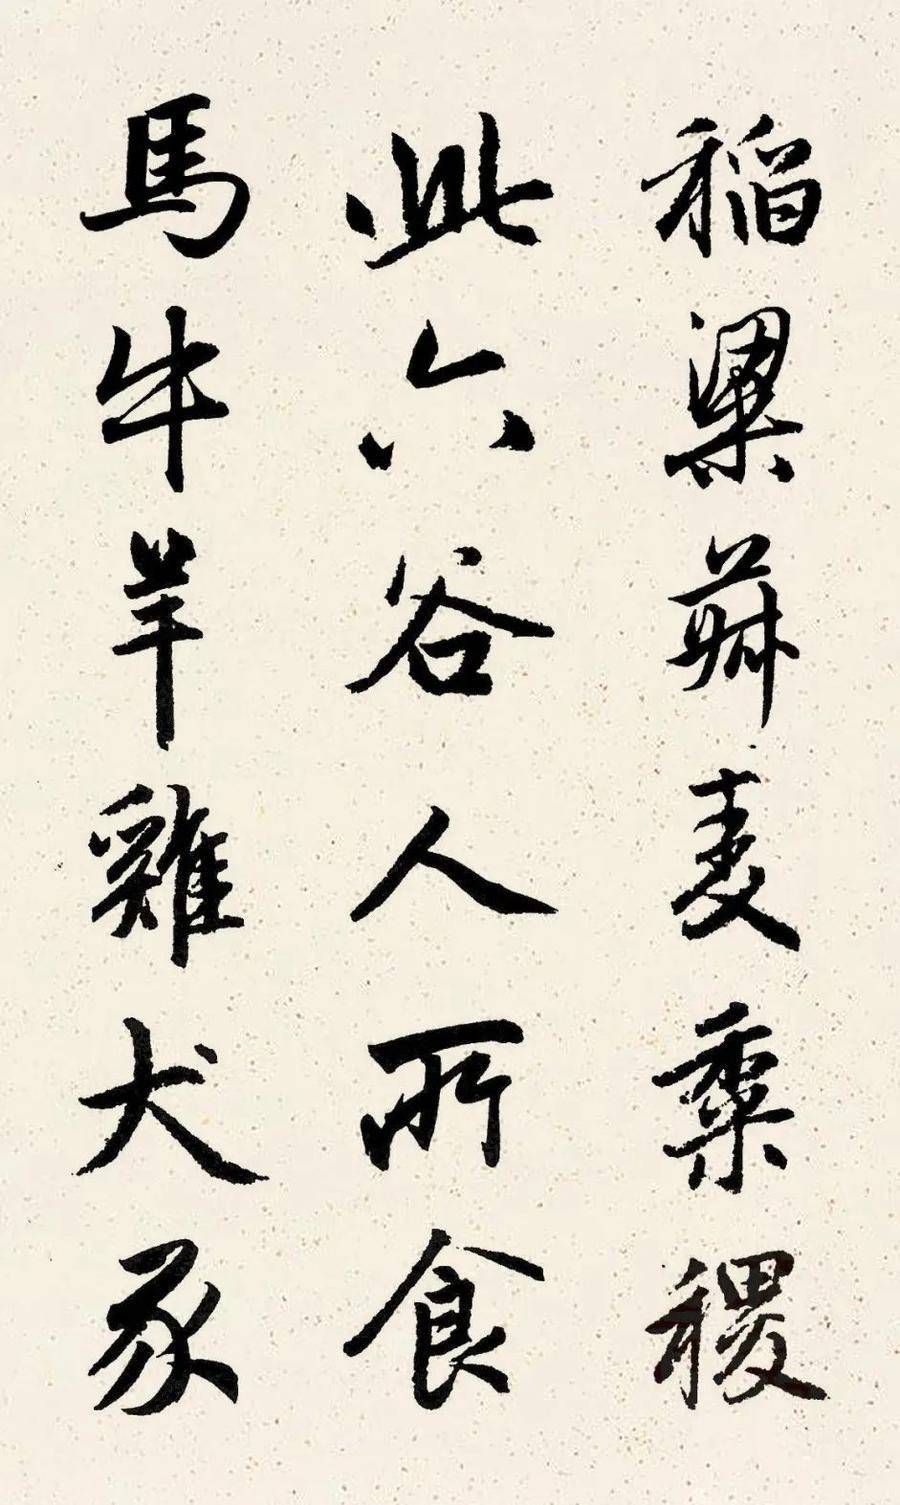 稻粱菽麦黍稷
此六谷人所食
馬牛羊雞犬豕